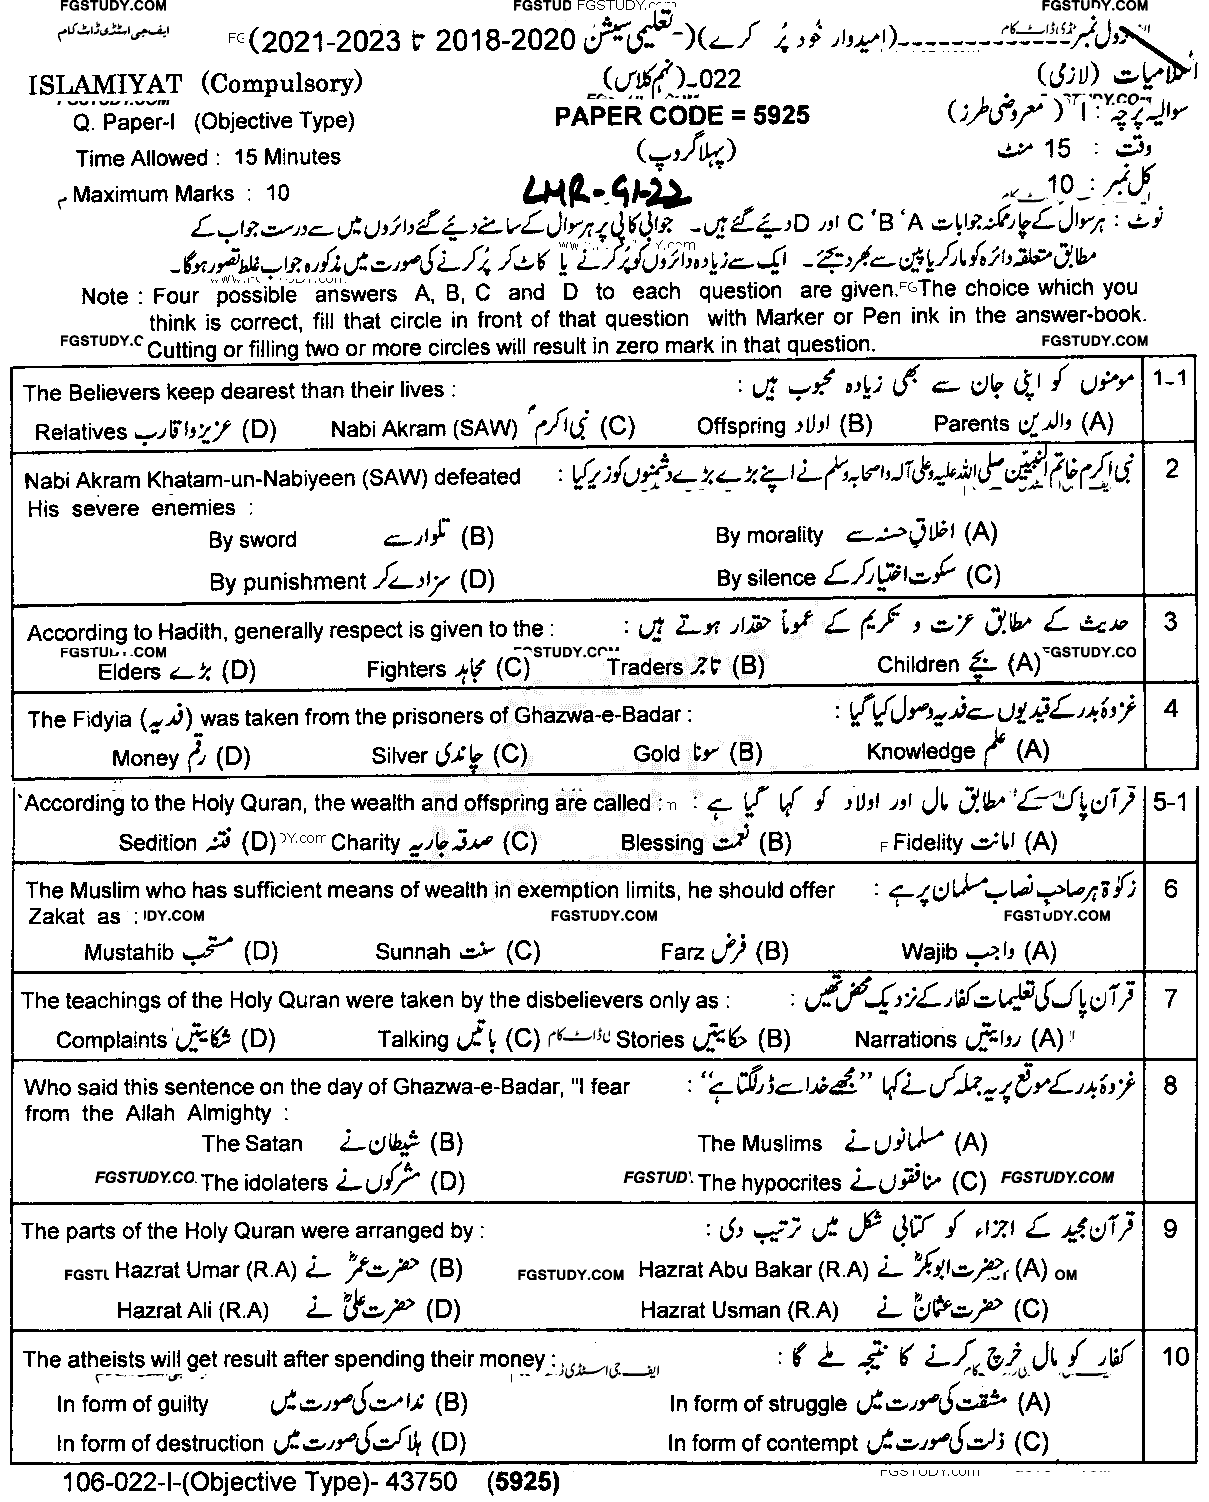 FGSTUDY.COM FGSTUD FGSTUDY.com FGSTUDY.COM
ایف جی اسٹڈی ڈاٹ کام
رول نمبر ـــــــــ (امیدوار خود پُر کرے) (تعلیمی سیشن 2018-2020 تا 2021-2023) FG
ISLAMIYAT (Compulsory) 022ـ(نہم کلاس) اسلامیات (لازمی)
FGSTUDY.COM
Q. Paper-I (Objective Type) PAPER CODE = 5925 سوالیہ پرچہ : I (معروضی طرز)
Time Allowed : 15 Minutes (پہلا گروپ) وقت : 15 منٹ
Maximum Marks : 10 LHR-G1-22 کل نمبر : 10
نوٹ : ہر سوال کے چار ممکنہ جوابات A ‘B ‘C اور D دیے گئے ہیں۔ جوابی کاپی پر ہر سوال کے سامنے دیے گئے دائروں میں سے درست جواب کے
مطابق متعلقہ دائرہ کو مارکر یا پین سے بھر دیجئے۔ ایک سے زیادہ دائروں کو پُر کرنے یا کاٹ کر پُر کرنے کی صورت میں مذکورہ جواب غلط تصور ہو گا۔
Note : Four possible answers A, B, C and D to each question are given. FG The choice which you
think is correct, fill that circle in front of that question with Marker or Pen ink in the answer-book.
FGSTUDY.C Cutting or filling two or more circles will result in zero mark in that question. FGSTUDY.COM
The Believers keep dearest than their lives : مومنوں کو اپنی جان سے بھی زیادہ محبوب ہیں : 1-1
Relatives عزیز و اقارب (D) Nabi Akram (SAW) نبی اکرمؐ (C) Offspring اولاد (B) Parents والدین (A)
Nabi Akram Khatam-un-Nabiyeen (SAW) defeated نبی اکرم خاتم النبیّین صلی اللہ علیہ وعلی آلہ واصحابہ وسلم نے اپنے بڑے بڑے دشمنوں کو زیر کیا : 2
His severe enemies :
By sword تلوار سے (B) By morality اخلاقِ حسنہ سے (A)
By punishment سزا دے کر (D) By silence سکوت اختیار کر کے (C)
According to Hadith, generally respect is given to the : حدیث کے مطابق عزت و تکریم کے عموماً حقدار ہوتے ہیں : 3
FGSTUD .COM GSTUDY.COM FGSTUDY.CO
Elders بڑے (D) Fighters مجاہد (C) Traders تاجر (B) Children بچے (A)
The Fidyia (فدیہ) was taken from the prisoners of Ghazwa-e-Badar : غزوۂ بدر کے قیدیوں سے فدیہ وصول کیا گیا : 4
Money رقم (D) Silver چاندی (C) Gold سونا (B) Knowledge علم (A)
According to the Holy Quran, the wealth and offspring are called : قرآن پاک کے مطابق مال اور اولاد کو کہا گیا ہے : 5-1
Sedition فتنہ (D) DY.com Charity صدقہ جاریہ (C) Blessing نعمت (B) F Fidelity امانت (A)
The Muslim who has sufficient means of wealth in exemption limits, he should offer زکوٰۃ ہر صاحبِ نصاب مسلمان پر ہے : 6
Zakat as : IDY.COM FGSTUDY.COM FGSTUDY.COM
Mustahib مستحب (D) Sunnah سنت (C) Farz فرض (B) Wajib واجب (A)
The teachings of the Holy Quran were taken by the disbelievers only as : قرآن پاک کی تعلیمات کفار کے نزدیک محض تھیں : 7
Complaints شکایتیں (D) Talking باتیں (C) ڈاٹ کام Stories حکایتیں (B) Narrations روایتیں (A)
Who said this sentence on the day of Ghazwa-e-Badar, "I fear غزوۂ بدر کے موقع پر یہ جملہ کس نے کہا ”مجھے خدا سے ڈر لگتا ہے“ : 8
from the Allah Almighty :
The Satan شیطان نے (B) The Muslims مسلمانوں نے (A)
FGSTUDY.CO The idolaters مشرکوں نے (D) FGSTUD The hypocrites منافقوں نے (C) FGSTUDY.COM
The parts of the Holy Quran were arranged by : قرآن مجید کے اجزاء کو کتابی شکل میں ترتیب دی : 9
FGSTU Hazrat Umar (R.A) حضرت عمرؓ نے (B) FGSTUDY.COM Hazrat Abu Bakar (R.A) حضرت ابوبکرؓ نے (A) OM
Hazrat Ali (R.A) حضرت علیؓ نے (D) Hazrat Usman (R.A) حضرت عثمانؓ نے (C)
The atheists will get result after spending their money : کفار کو مال خرچ کرنے کا نتیجہ ملے گا : 10
In form of guilty ندامت کی صورت میں (B) In form of struggle مشقت کی صورت میں (A)
In form of destruction ہلاکت کی صورت میں (D) In form of contempt ذلت کی صورت میں (C)
106-022-I-(Objective Type)- 43750 (5925) FGSTUDY.com